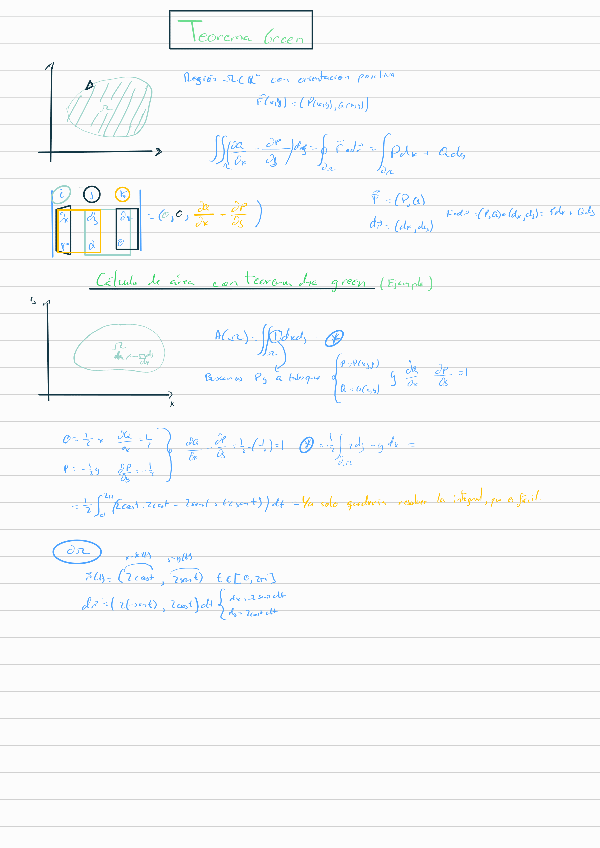 Teorema Green
Región Ω⊂ℝ² con orientación positiva
F(x,y) = (P(x,y), Q(x,y))
∬_Ω (∂Q/∂x - ∂P/∂y) dxdy = ∮_∂Ω F·dr = ∫_∂Ω Pdx + Qdy
i j k
∂x ∂y ∂z = (0, 0, ∂Q/∂x - ∂P/∂y)
P Q 0
F = (P,Q)
dr = (dx, dy)
F·dr = (P,Q)·(dx,dy) = Pdx + Qdy
Cálculo de área con teorema de green (Ejemplo)
y
Ω
x
A(Ω) = ∬_Ω 1 dxdy
Buscamos P y Q tal que { P=P(x,y) Q=Q(x,y) y ∂Q/∂x - ∂P/∂y = 1
Q = 1/2 x ∂Q/∂x = 1/2
P = -1/2 y ∂P/∂y = -1/2
∂Q/∂x - ∂P/∂y = 1/2 - (-1/2) = 1
= 1/2 ∫_∂Ω xdy - ydx =
= 1/2 ∫_0^2π (2cost · 2cost - 2sent · (-2sent)) dt - Ya solo quedaría resolver la integral, que es fácil
∂Ω
x=x(t) y=y(t)
r(t) = (2cost, 2sent) t∈[0,2π]
dr = (-2(sent), 2cost)dt { dx=-2sent dt
dy=2cost dt